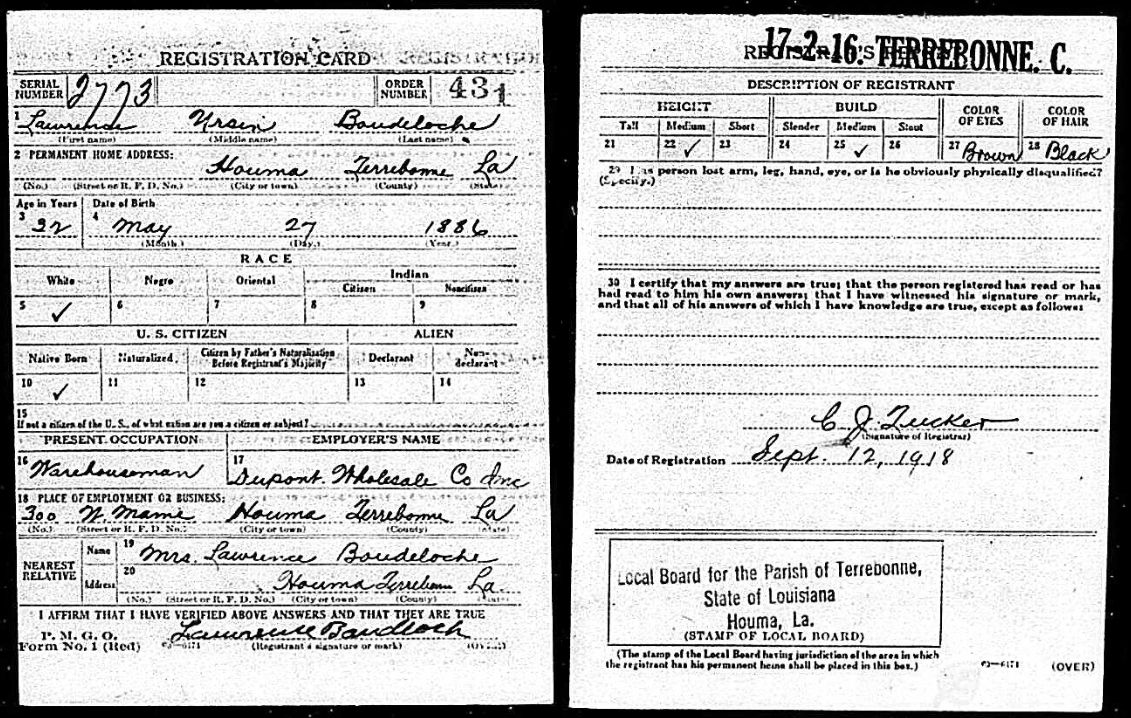 REGISTRATION CARD
SERIAL NUMBER 2773 ORDER NUMBER 431
1 Lawrence Ursin Boudeloche
(First name) (Middle name) (Last name)
2 PERMANENT HOME ADDRESS:
Houma Terrebonne La
(No.) (Street or R. F. D. No.) (City or town) (County) (State)
Age in Years Date of Birth
3 32 4 May 27 1886
(Month.) (Day.) (Year.)
RACE
White Negro Oriental Indian
Citizen Noncitizen
5 ✓ 6 7 8 9
U. S. CITIZEN ALIEN
Native Born Naturalized Citizen by Father's Naturalization Before Registrant's Majority Declarant Non-declarant
10 ✓ 11 12 13 14
15
If not a citizen of the U. S., of what nation are you a citizen or subject?
PRESENT OCCUPATION EMPLOYER'S NAME
16 Warehouseman 17 Dupont Wholesale Co Inc
18 PLACE OF EMPLOYMENT OR BUSINESS:
300 N. Maine Houma Terrebonne La
(No.) (Street or R. F. D. No.) (City or town) (County) (State)
NEAREST RELATIVE Name 19 Mrs. Lawrence Boudeloche
Address 20 Houma Terrebonne La.
(No.) (Street or R. F. D. No.) (City or town) (County) (State)
I AFFIRM THAT I HAVE VERIFIED ABOVE ANSWERS AND THAT THEY ARE TRUE
P. M. G. O.
Form No. 1 (Red) Lawrence Baudloch
(Registrant's signature or mark) (OVER)
REGISTRAR'S REPORT
17-2-16. TERREBONNE. C.
DESCRIPTION OF REGISTRANT
HEIGHT BUILD COLOR OF EYES COLOR OF HAIR
Tall Medium Short Slender Medium Stout
21 22 ✓ 23 24 25 ✓ 26 27 Brown 28 Black
29 Has person lost arm, leg, hand, eye, or is he obviously physically disqualified?
(Specify.)
30 I certify that my answers are true; that the person registered has read or has
had read to him his own answers; that I have witnessed his signature or mark,
and that all of his answers of which I have knowledge are true, except as follows:
C. J. Tucker
(Signature of Registrar)
Date of Registration Sept. 12, 1918
Local Board for the Parish of Terrebonne,
State of Louisiana
Houma, La.
(STAMP OF LOCAL BOARD)
(The stamp of the Local Board having jurisdiction of the area in which
the registrant has his permanent home shall be placed in this box.)
(OVER)